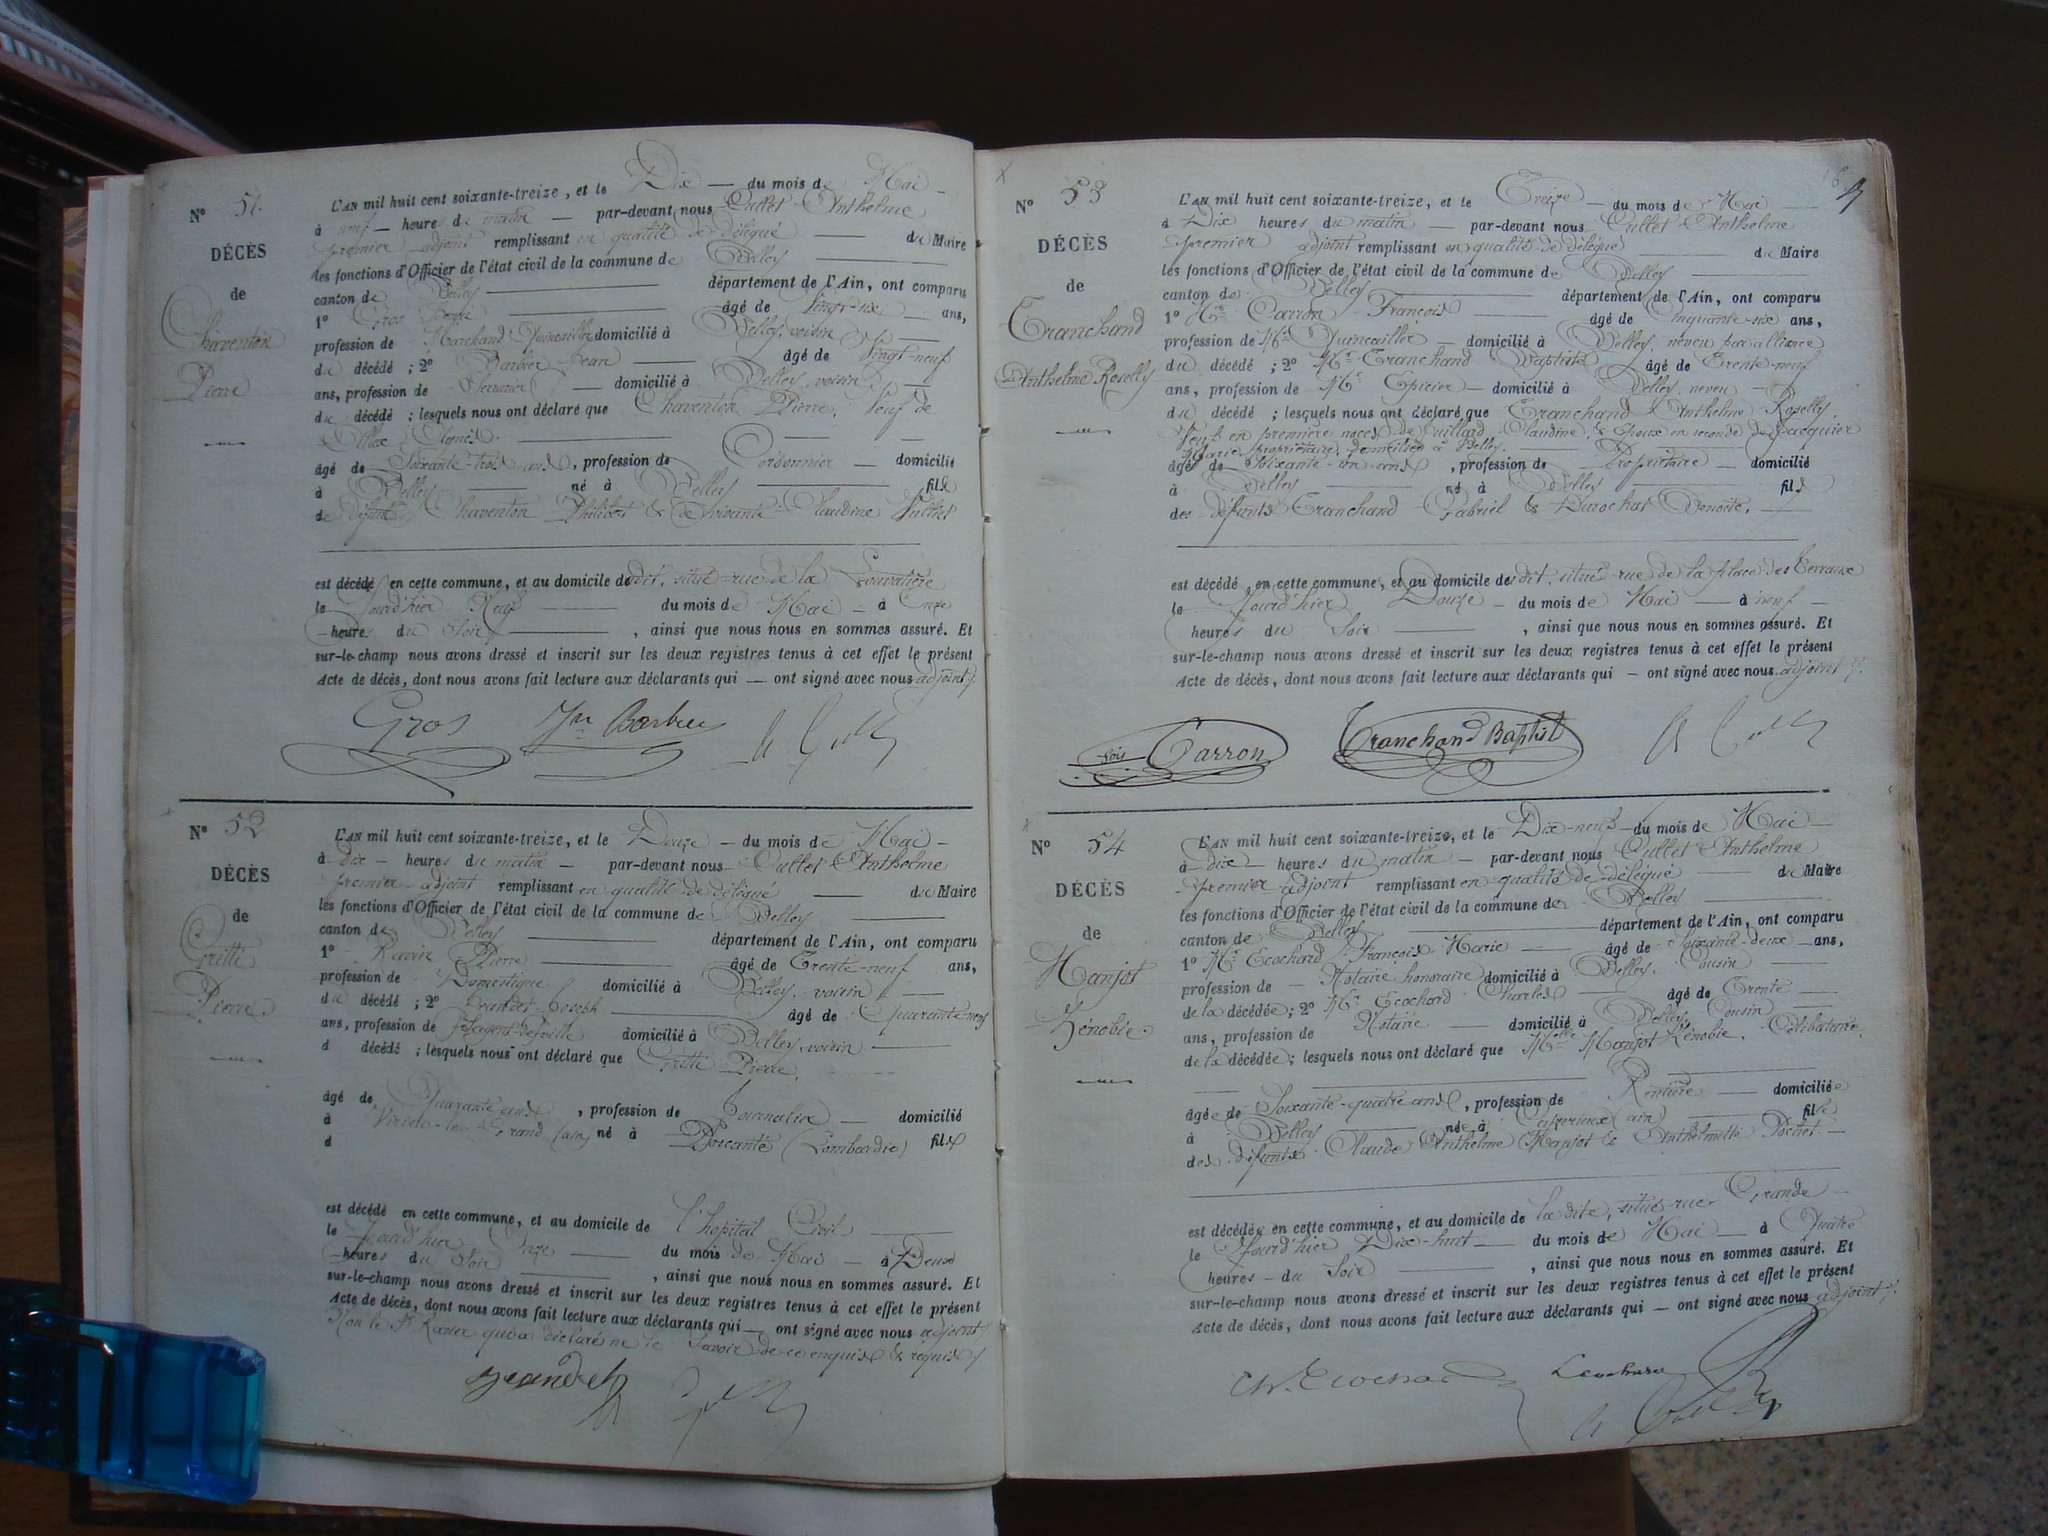 N° 51.
DÉCÈS
de
Chaventon
Pierre
L'AN mil huit cent soixante-treize, et le Dix — du mois de Mai —
à neuf — heures du matin — par-devant nous Cullet Anthelme
premier adjoint remplissant en qualité de délégué — du Maire
les fonctions d'Officier de l'état civil de la commune de Belley
canton de Belley — département de l'Ain, ont comparu
1° Gros — âgé de vingt-six — ans,
profession de Marchand Quincailler domicilié à Belley, voisin
du décédé ; 2° Barbier Jean — âgé de Vingt-neuf
ans, profession de Serrurier — domicilié à Belley, voisin —
du décédé ; lesquels nous ont déclaré que Chaventon Pierre, Veuf de
âgé de Soixante-trois ans, profession de Cordonnier — domicilié
à Belley — né à Belley — fils
de défunt Chaventon Philibert & de vivante Claudine
est décédé en cette commune, et au domicile dudit, situé rue de la
le Jourd'hier Neuf — du mois de Mai — à Onze
heures du Soir —, ainsi que nous nous en sommes assuré. Et
sur-le-champ nous avons dressé et inscrit sur les deux registres tenus à cet effet le présent
Acte de décès, dont nous avons fait lecture aux déclarants qui — ont signé avec nous adjoint.
Gros Jn Barbier
N° 52
DÉCÈS
de
Gritti
Pierre.
L'AN mil huit cent soixante-treize, et le Douze — du mois de Mai —
à dix — heures du matin — par-devant nous Cullet Anthelme
premier adjoint remplissant en qualité de délégué — du Maire
les fonctions d'Officier de l'état civil de la commune de Belley
canton de Belley — département de l'Ain, ont comparu
1° Pierre — âgé de Trente-neuf ans,
profession de Domestique domicilié à Belley, voisin —
du décédé ; 2° Jeandet Joseph — âgé de Quarante-neuf
ans, profession de Sergent de ville domicilié à Belley, voisin
d décédé ; lesquels nous ont déclaré que Gritti Pierre,
âgé de Quarante ans, profession de Journalier — domicilié
à Virieu-le-Grand (ain) né à (Lombardie) fils
d
est décédé en cette commune, et au domicile de l'hopital Civil
le Jourd'hier Onze — du mois de Mai — à Deux
heures du Soir —, ainsi que nous nous en sommes assuré. Et
sur-le-champ nous avons dressé et inscrit sur les deux registres tenus à cet effet le présent
Acte de décès, dont nous avons fait lecture aux déclarants qui — ont signé avec nous adjoint
Non le Sr qui a déclaré ne le Savoir de ce enquis & requis
Jeandet
N° 53
DÉCÈS
de
Tranchand
Anthelme Roselly
L'AN mil huit cent soixante-treize, et le Treize — du mois de Mai —
à Dix heures du matin — par-devant nous Cullet Anthelme
premier adjoint remplissant en qualité de délégué — du Maire
les fonctions d'Officier de l'état civil de la commune de Belley
canton de Belley — département de l'Ain, ont comparu
1° Mr Carron François — âgé de Cinquante-six ans,
profession de Md Quincailler — domicilié à Belley, neveu par alliance
du décédé ; 2° Mr Tranchand Baptiste âgé de Trente-neuf
ans, profession de Md Epicier — domicilié à Belley, neveu —
du décédé ; lesquels nous ont déclaré que Tranchand Anthelme Roselly.
Veuf en première noces de Juillard Claudine, & Epoux en seconde de Jacquier
Marie, propriétaire, domiciliée à Belley.
âgé de Soixante-un ans, profession de Propriétaire — domicilié
à Belley — né à Belley — fils
des défunts Tranchand Gabriel & Benoîte.
est décédé, en cette commune, et au domicile dudit, situé rue de la place des Terreaux
le Jourd'hier Douze — du mois de Mai — à neuf —
heures du Soir —, ainsi que nous nous en sommes assuré. Et
sur-le-champ nous avons dressé et inscrit sur les deux registres tenus à cet effet le présent
Acte de décès, dont nous avons fait lecture aux déclarants qui — ont signé avec nous adjoint.
fois Carron Tranchand Baptist
N° 54
DÉCÈS
de
Manjot
Zénobie.
L'AN mil huit cent soixante-treize, et le Dix-neuf — du mois de Mai —
à dix — heures du matin — par-devant nous Cullet Anthelme
premier adjoint remplissant en qualité de délégué — du Maire
les fonctions d'Officier de l'état civil de la commune de Belley
canton de Belley — département de l'Ain, ont comparu
1° Mr Ecochard François Marie — âgé de Soixante-deux — ans,
profession de Notaire honoraire domicilié à Belley, Cousin
de la décédée ; 2° Mr Ecochard Charles — âgé de Trente —
ans, profession de Notaire — domicilié à Belley, Cousin
de la décédée ; lesquels nous ont déclaré que Melle Manjot Zénobie, Célibataire.
âgée de Soixante-quatre ans, profession de Rentière — domiciliée
à Belley — née à Ceyzerieux (ain) — fille
des défunts Claude Anthelme Manjot & Anthelmette
est décédée en cette commune, et au domicile de la dite, situé rue Grande
le Jourd'hier Dix-huit — du mois de Mai — à Quatre
heures — du Soir —, ainsi que nous nous en sommes assuré. Et
sur-le-champ nous avons dressé et inscrit sur les deux registres tenus à cet effet le présent
Acte de décès, dont nous avons fait lecture aux déclarants qui — ont signé avec nous adjoint.
Ch. Ecochard Ecochard